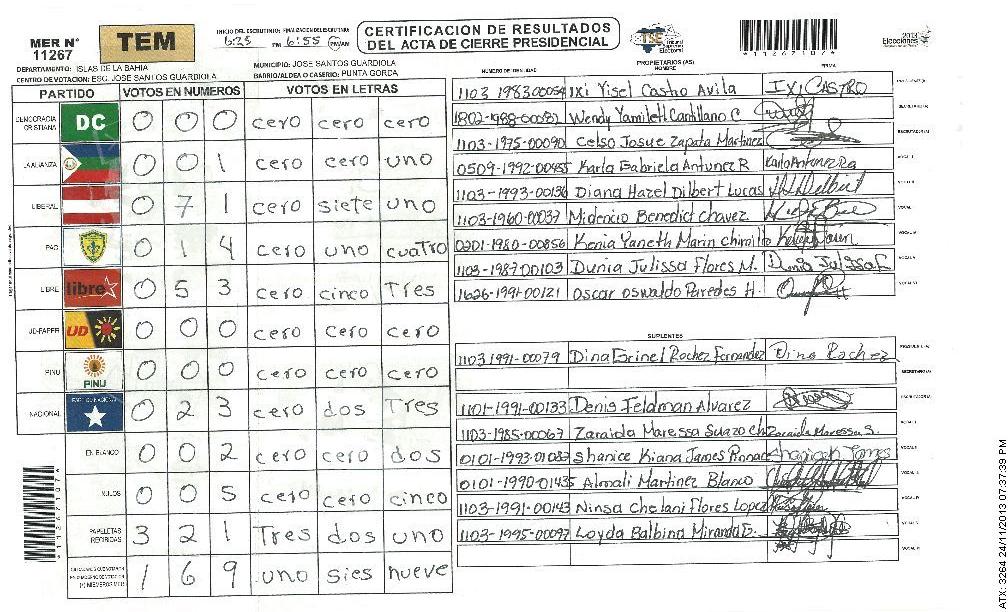 MER N° 11267
TEM
INICIO DEL ESCRUTINIO: 6:25 PM FINALIZACION DEL ESCRUTINIO: 6:55 PM/AM
CERTIFICACION DE RESULTADOS
DEL ACTA DE CIERRE PRESIDENCIAL
TSE
Tribunal Supremo Electoral
*1126710/*
2013
Elecciones
DEPARTAMENTO: ISLAS DE LA BAHIA
MUNICIPIO: JOSE SANTOS GUARDIOLA
CENTRO DE VOTACION: ESC. JOSE SANTOS GUARDIOLA
BARRIO/ALDEA O CASERIO: PUNTA GORDA
PARTIDO VOTOS EN NUMEROS VOTOS EN LETRAS
DEMOCRACIA CRISTIANA DC 0 0 0 cero cero cero
LA ALIANZA 0 0 1 cero cero uno
LIBERAL 0 7 1 cero siete uno
PAC 0 1 4 cero uno cuatro
LIBRE libre 0 5 3 cero cinco Tres
UD-FAPER UD 0 0 0 cero cero cero
PINU PINU 0 0 0 cero cero cero
NACIONAL PARTIDO NACIONAL 0 2 3 cero dos Tres
EN BLANCO 0 0 2 cero cero dos
NULOS 0 0 5 cero cero cinco
PAPELETAS RECIBIDAS 3 2 1 Tres dos uno
1 6 9 uno sies nueve
PROPIETARIOS (AS)
NUMERO DE IDENTIDAD NOMBRE FIRMA
1103 1983 00054 Ixi Yisel Castro Avila IXI CASTRO
1802-1988-00082 Wendy Yamileth Cantillano C
1103-1975-00090 Celso Josue Zapata Martinez
0509-1992-00455 Karla Gabriela Antunez R Karla Antunez Ra
1103-1993-00136 Diana Hazel Dilbert Lucas
1103-1960-00037 Midencio Benedict chavez
0201-1980-00856 Kenia Yaneth Marin
1103-1987-00103 Dunia Julissa Flores M. Dunia Julissa F.
1626-1991-00121 Oscar Oswaldo Paredes H.
SUPLENTES
1103 1991-00079 Dina Grinel Rochez Fernandez Dina Rochez
1101-1991-00133 Denis Feldman Alvarez
1103-1985-00067 Zaraida Maressa Suazo Ch Zaraida Maressa S.
0101-1993-01087 Shanice Kiana James
0101-1990-01435 Almali Martinez Blanco
1103-1991-00143 Ninsa Chelani Flores Lopez
1103-1995-00097 Loyda Balbina Miranda G.
ATX: 3264 24/11/2013 07:37:39 PM